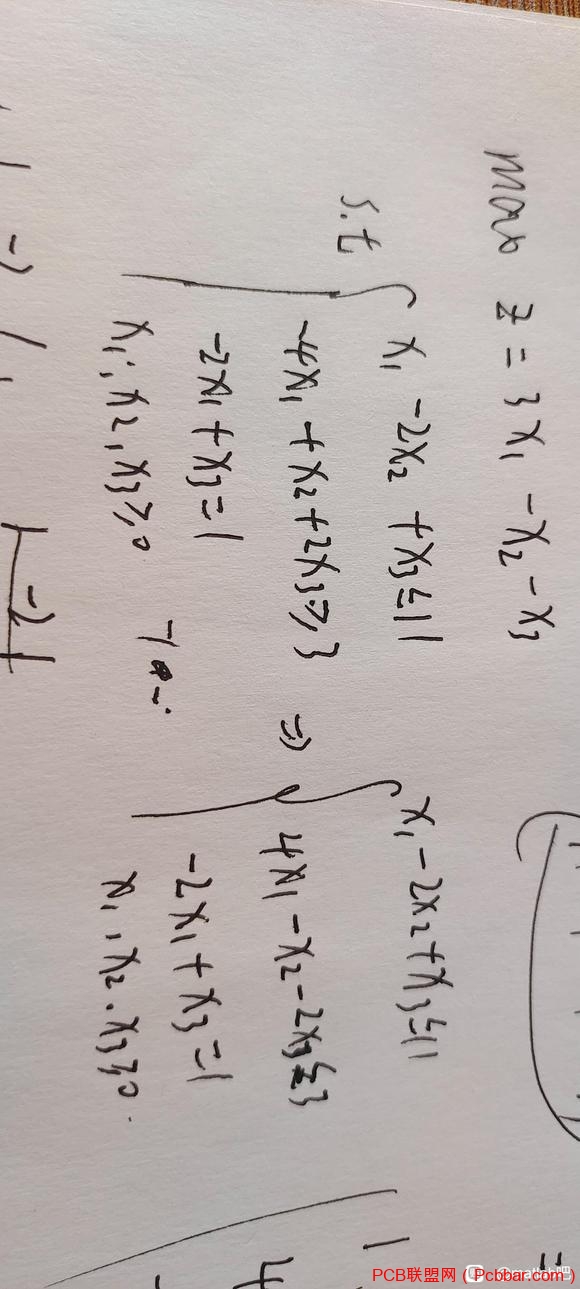 max z = 3x₁ - x₂ - x₃
s.t { x₁ - 2x₂ + x₃ ≤ 11
-4x₁ + x₂ + 2x₃ ≥ 3
-2x₁ + x₃ = 1
x₁, x₂, x₃ ≥ 0
⇒ { x₁ - 2x₂ + x₃ ≤ 11
4x₁ - x₂ - 2x₃ ≤ 3
-2x₁ + x₃ = 1
x₁, x₂, x₃ ≥ 0.
-2
1
4
PCB联盟网 ( Pcbbar.com )